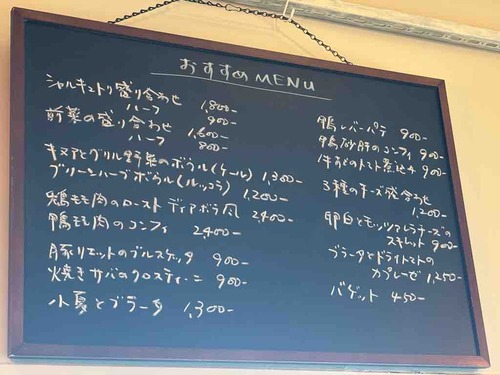 おすすめMENU
シャルキュトリ盛り合わせ 1,800-
ハーフ 900-
前菜の盛り合わせ 1,600-
ハーフ 800-
キヌアとグリル野菜のボウル(ケール) 1,300-
グリーンハーブボウル(ルッコラ) 1,200-
鶏モモ肉のロースト ディアボラ風 2,400-
鴨モモ肉のコンフィ 2,400-
豚リエットのブルスケッタ 900-
焼きサバのクロスティーニ 900-
小夏とブラータ 1,300-
鴨レバーパテ 900-
鴨砂肝のコンフィ 900-
牛すじのトマト煮込み 900-
3種のチーズ盛合わせ
1,200-
卵白とモッツァレラチーズの
スキレット 900-
ブラータとドライトマトの
カプレーゼ 1,250-
バゲット 450-